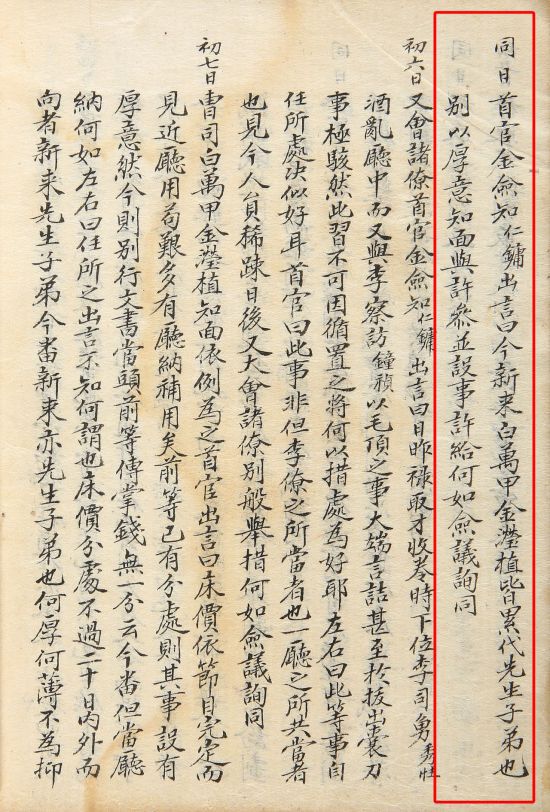 同日首官金僉知仁鏞出言曰今新来白萬甲金瀅植皆累代先生子弟也
別以厚意知面與許參並設事許給何如僉議詢同
初六日又會諸僚首官金僉知仁鏞出言曰日昨祿取才收券時下位李司勇秀
酒亂廳中而又與李察訪鐘禎以毛頂之事大端言詰甚至於拔出裳刀
事極駭然此習不可因循置之將何以措處為好耶左右曰此等事自
任所處决似好耳首官曰此事非但李僚之所當者也一廳之所共當者
也見今人員稀踈日後又大會諸僚別般舉措何如僉議詢同
初七日曺司白萬甲金瀅植知面依例為之首官出言曰床價依節目完定而
見近廳用苟艱多有廳納補用矣前等已有分處則其事設有
厚意然今則別行文書當頭前等傳掌錢無一分云今番但當廳
納何如左右曰任所之出言示知何謂也床價分處不過二十日內外而
向者新来先生子弟今番新来亦先生子弟也何厚何薄不為抑